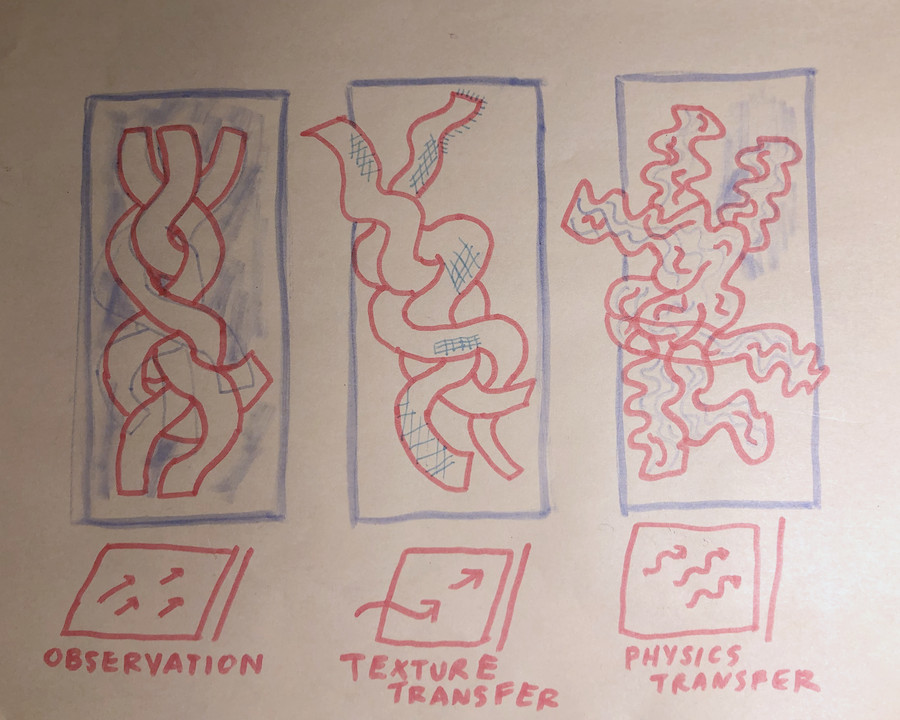 OBSERVATION
TEXTURE
TRANSFER
PHYSICS
TRANSFER